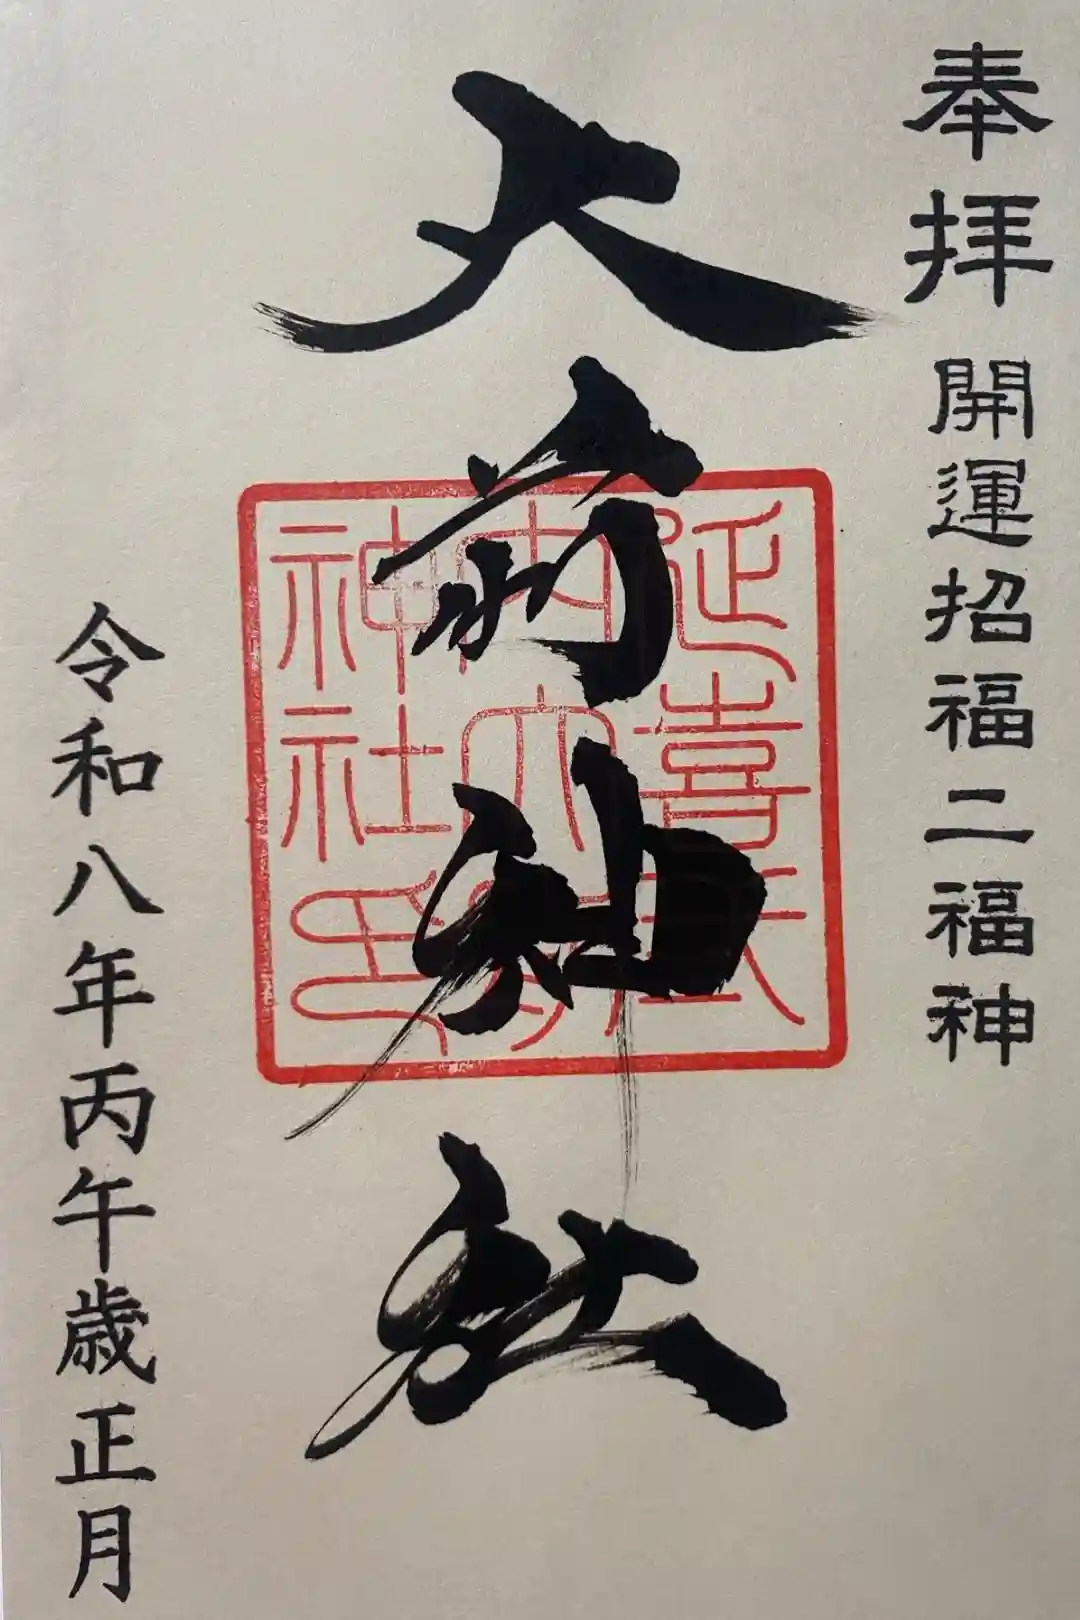 奉拝
開運招福二福神
大前神社
延喜式
内大前
神社印
令和八年丙午歳正月